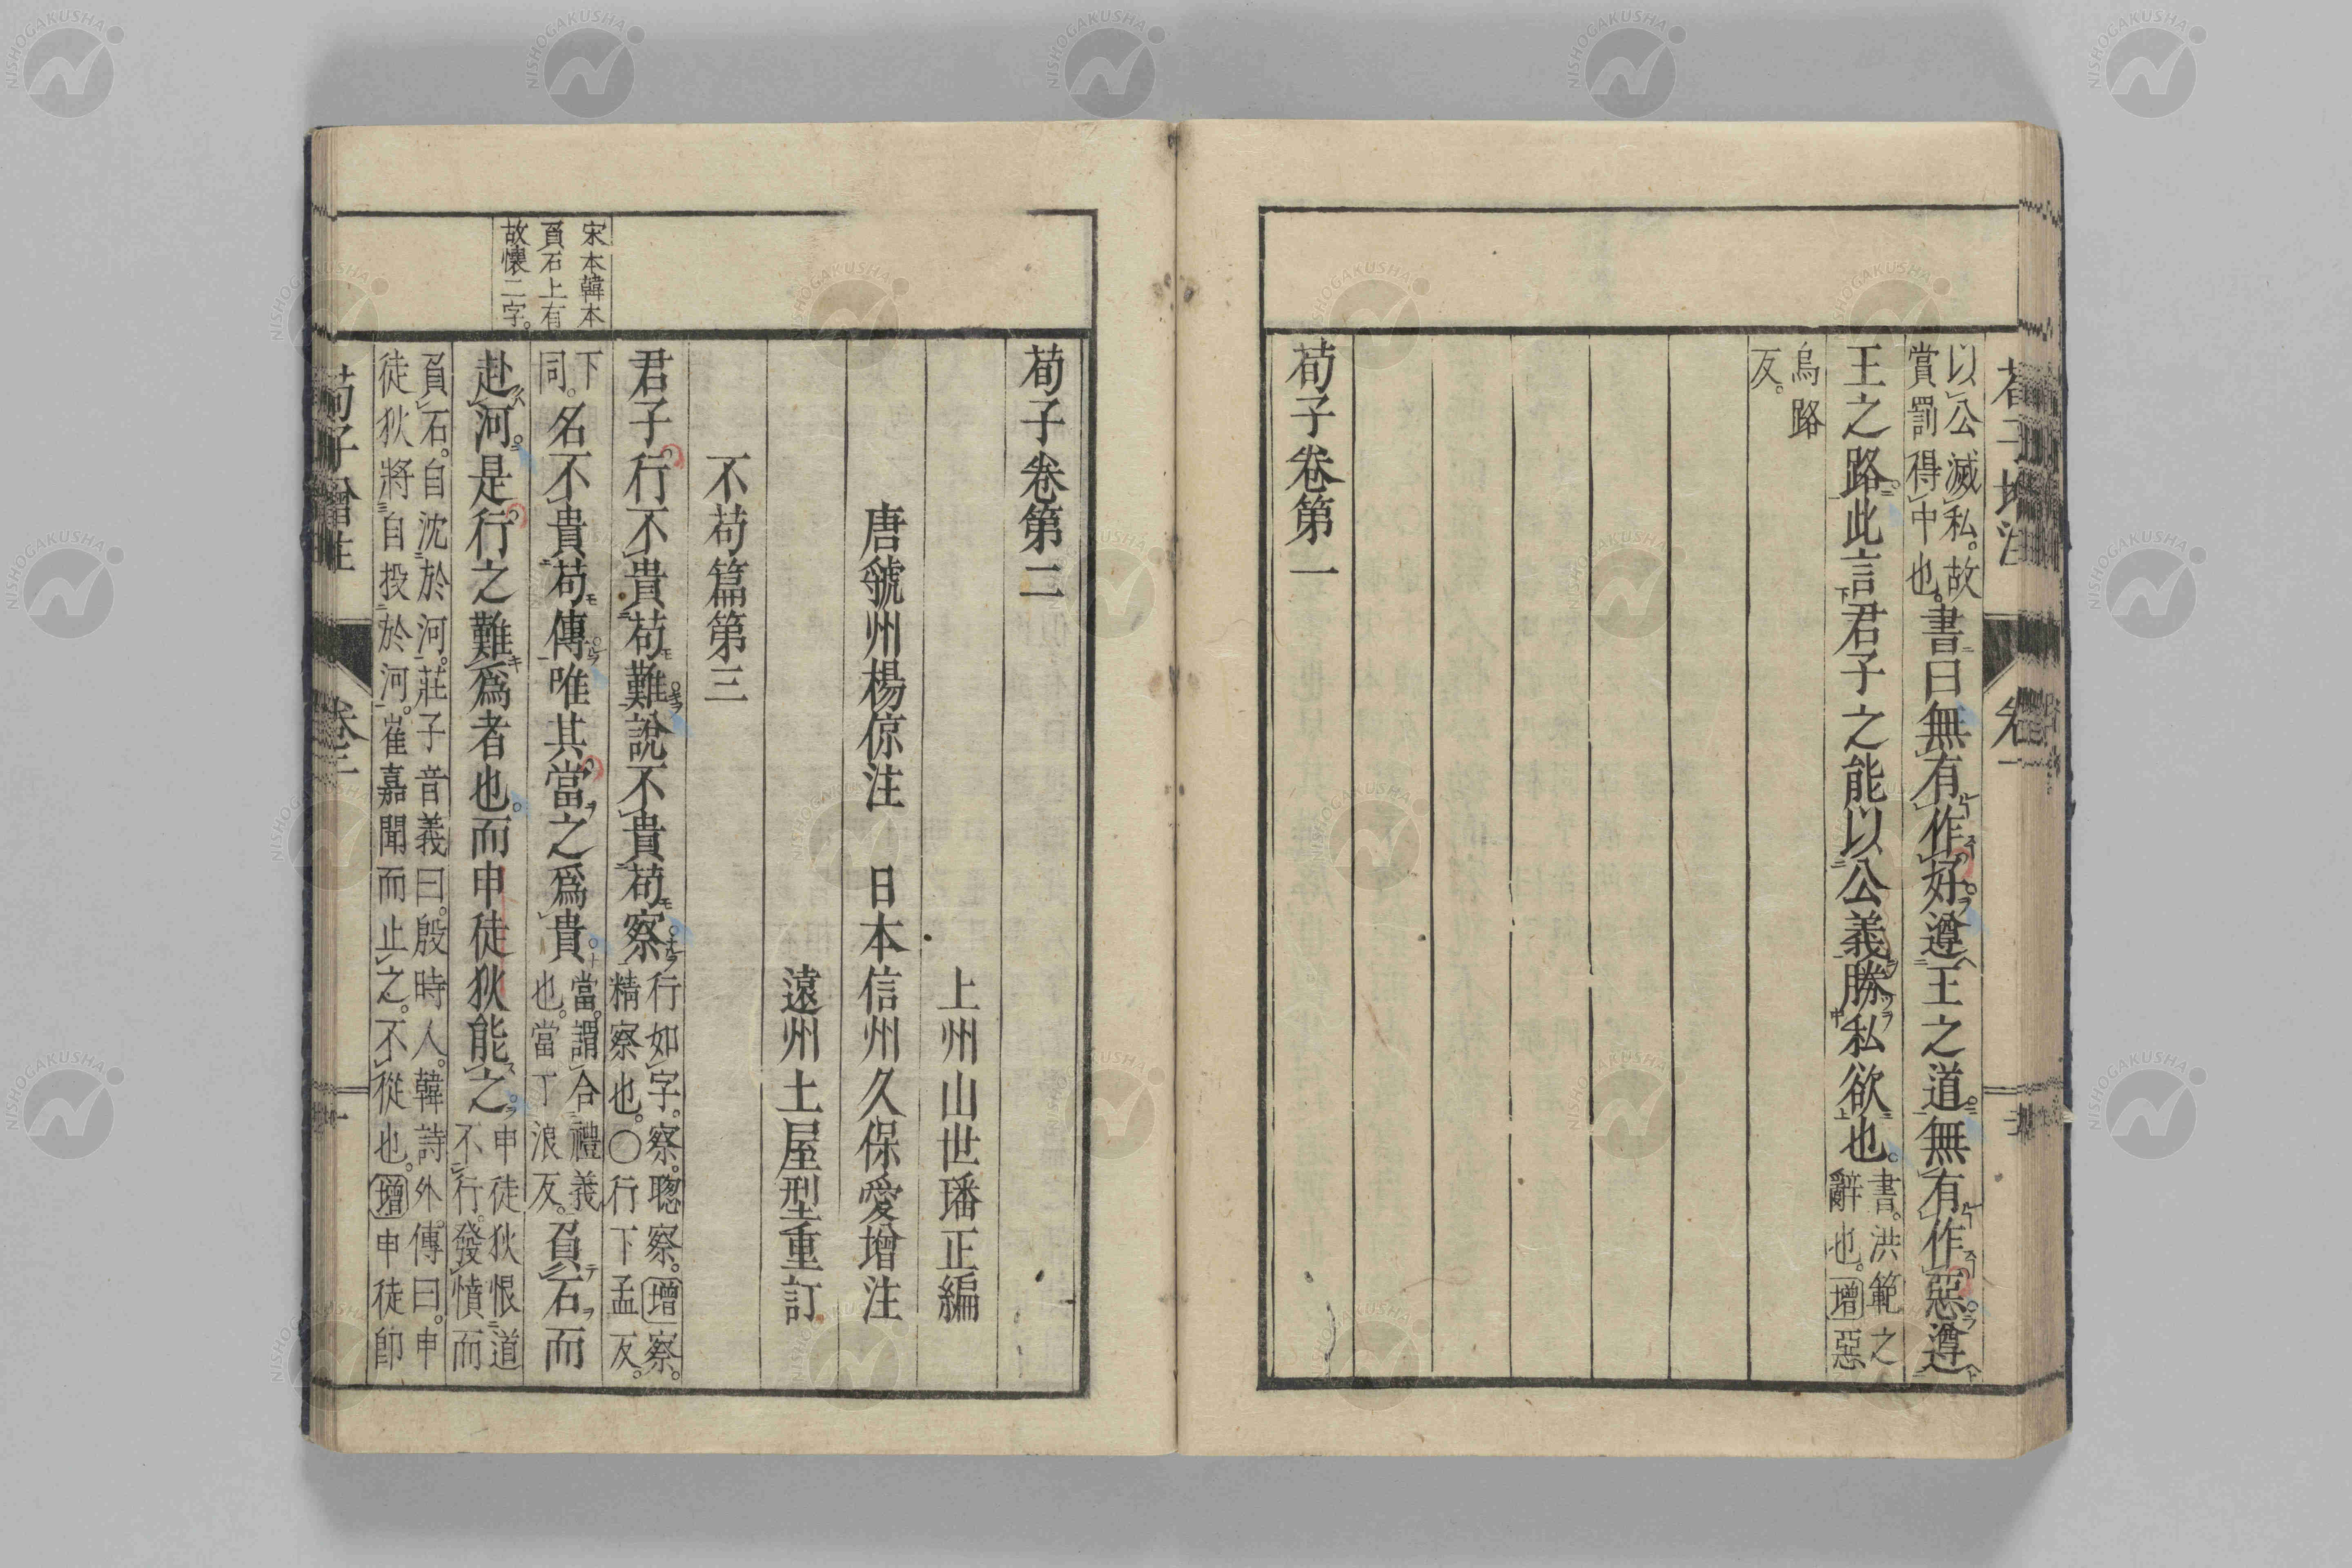 荀子增注 卷一
以公滅私。故
賞罰得中也。
書曰無有作好遵王之道。無有作惡遵
王之路。此言君子之能以公義勝私欲也。
書。洪範之
辭也。增惡
烏路
反。
荀子卷第一
荀子卷第二
上州山世璠正編
唐虢州楊倞注 日本信州久保愛增注
遠州土屋型重訂
不苟篇第三
君子行不貴苟難說不貴苟察
行如字。察。聰察。增察。
精察也。〇行下孟反。
下
同。
名不貴苟傳唯其當之爲貴
當。謂合禮義
也。當丁浪反。
負石而
赴河。是行之難爲者也。而申徒狄能之。
申徒狄恨道
不行。發憤而
負石。自沈於河。莊子音義曰。殷時人。韓詩外傳曰。申
徒狄將自投於河。崔嘉聞而止之。不從也。增申徒卽
宋本韓本
負石上有
故懷二字。
荀子增注 卷二 一
NISHOGAKUSHA